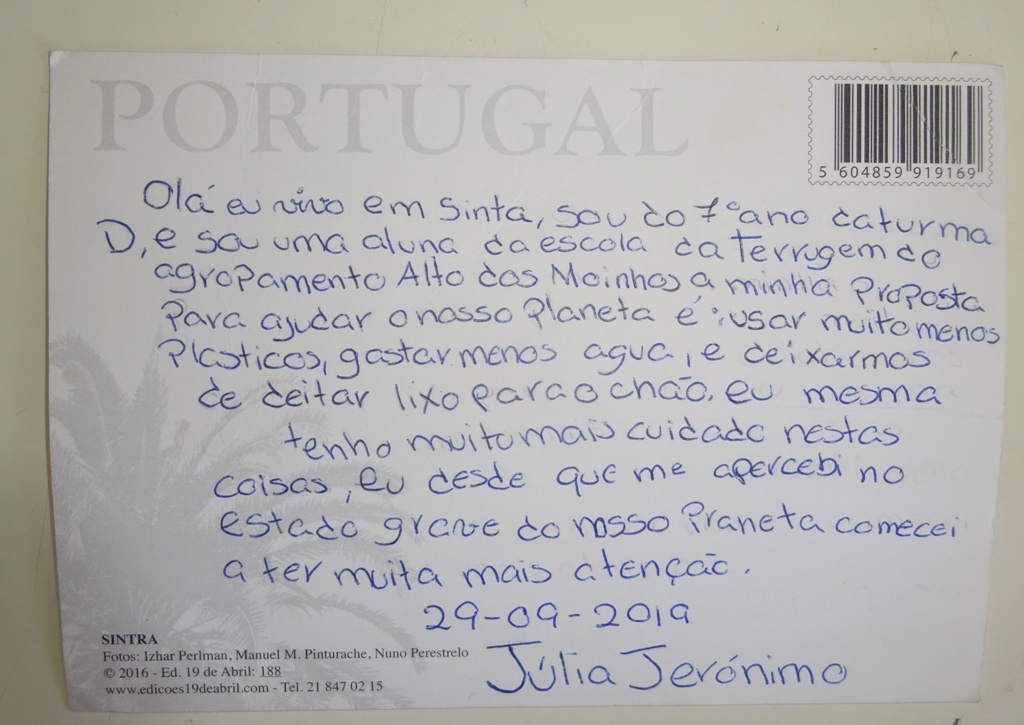 PORTUGAL
5 604859 919169
Olá eu vivo em Sinta, sou do 7º ano da turma
D, e sou uma aluna da escola da Terrugem do
agropamento Alto dos Moinhos a minha Proposta
Para ajudar o nosso Planeta é: usar muito menos
Plasticos, gastar menos agua, e deixarmos
de deitar lixo para o chão. eu mesma
tenho muito mais cuidado nestas
coisas, eu desde que me apercebi no
estado grave do nosso Praneta comecei
a ter muita mais atenção.
29-09-2019
Júlia Jerónimo
SINTRA
Fotos: Izhar Perlman, Manuel M. Pinturache, Nuno Perestrelo
© 2016 - Ed. 19 de Abril: 188
www.edicoes19deabril.com - Tel. 21 847 02 15